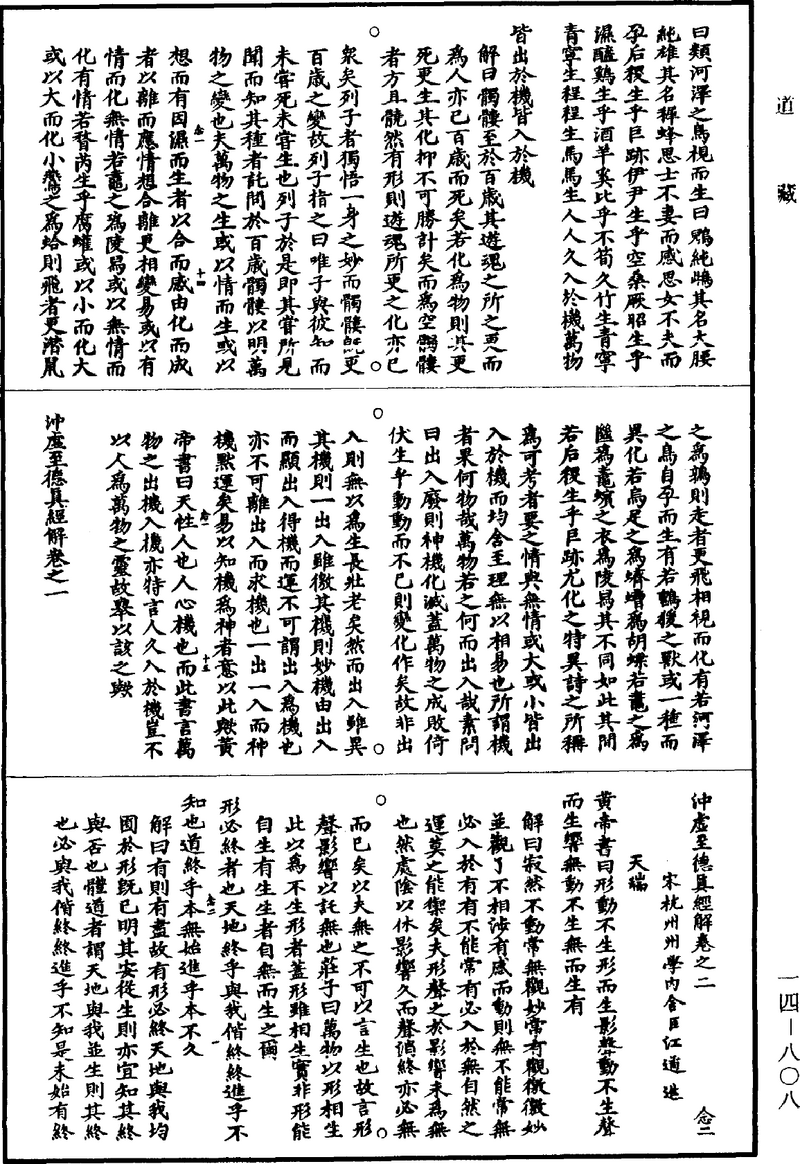 道藏
一四—八〇八
曰類河澤之鳥視而生曰鶂純雌其名大腰
純雄其名稺蜂思士不妻而感思女不夫而
孕后稷生乎巨跡伊尹生乎空桑厥昭生乎
濕醯鷄生乎酒羊奚比乎不筍久竹生青寧
青寧生程程生馬馬生人人久入於機萬物
皆出於機皆入於機
解曰髑髏至於百歲其遊魂之所之更而
為人亦已百歲而死矣若化為物則其更
死更生其化抑不可勝計矣而為空髑髏
者方且髐然有形則遊魂所更之化亦已
衆矣列子者獨悟一身之妙而髑髏旣更
百歲之變故列子指之曰唯予與彼知而
未甞死未甞生也列子於是即其甞所見
聞而知其種者託問於百歲髑髏以明萬
物之變也夫萬物之生或以情而生或以
念一 十四
想而有因濕而生者以合而感由化而成
者以離而應情想合離更相變易或以有
情而化無情若鼃之為陵舄或以無情而
化有情若瞀芮生乎腐蠸或以小而化大
或以大而化小鷰之為蛤則飛者更潛鼠
之為鶉則走者更飛相視而化有若河澤
之鳥自孕而生有若鸖猨之獸或一種而
異化若烏足之為蠐螬為胡蝶若鼃之為
㡭為鼃蠙之衣為陵舄其不同如此其間
若后稷生乎巨跡尤化之特異詩之所稱
為可考者要之情與無情或大或小皆出
入於機而均含至理無以相易也所謂機
者果何物哉萬物若之何而出入哉素問
曰出入廢則神機化滅蓋萬物之成敗倚
伏生乎動動而不已則變化作矣故非出
入則無以為生長壯老矣然而出入雖異
其機則一出入雖微其機則妙機由出入
而顯出入得機而運不可謂出入為機也
亦不可離出入而求機也一出一入而神
機默運矣易以知機為神者意以此歟黃
念一 十五
帝書曰天性人也人心機也而此書言萬
物之出機入機亦特言人久入於機豈不
以人為萬物之靈故舉以該之歟
沖虛至德真經解卷之一
沖虛至德真經解卷之二 念二
宋杭州州學內舍臣江遹進
天瑞
黃帝書曰形動不生形而生影聲動不生聲
而生響無動不生無而生有
解曰寂然不動常無觀妙常有觀徼徼妙
並觀了不相涉有感而動則無不能常無
必入於有有不能常有必入於無自然之
運莫之能禦矣夫形聲之於影響未為無
也然處陰以休影響久而聲消終亦必無
而已矣以夫無之不可以言生也故言形
聲影響以託無也莊子曰萬物以形相生
此以為不生形者蓋形雖相生實非形能
自生有生生者自無而生之爾
形必終者也天地終乎與我偕終終進乎不
念二 一
知也道終乎本無始進乎本不久
解曰有則有盡故有形必終天地與我均
囿於形旣已明其安從生則亦宜知其終
與否也體道者謂天地與我並生則其終
也必與我偕終終進乎不知是未始有終